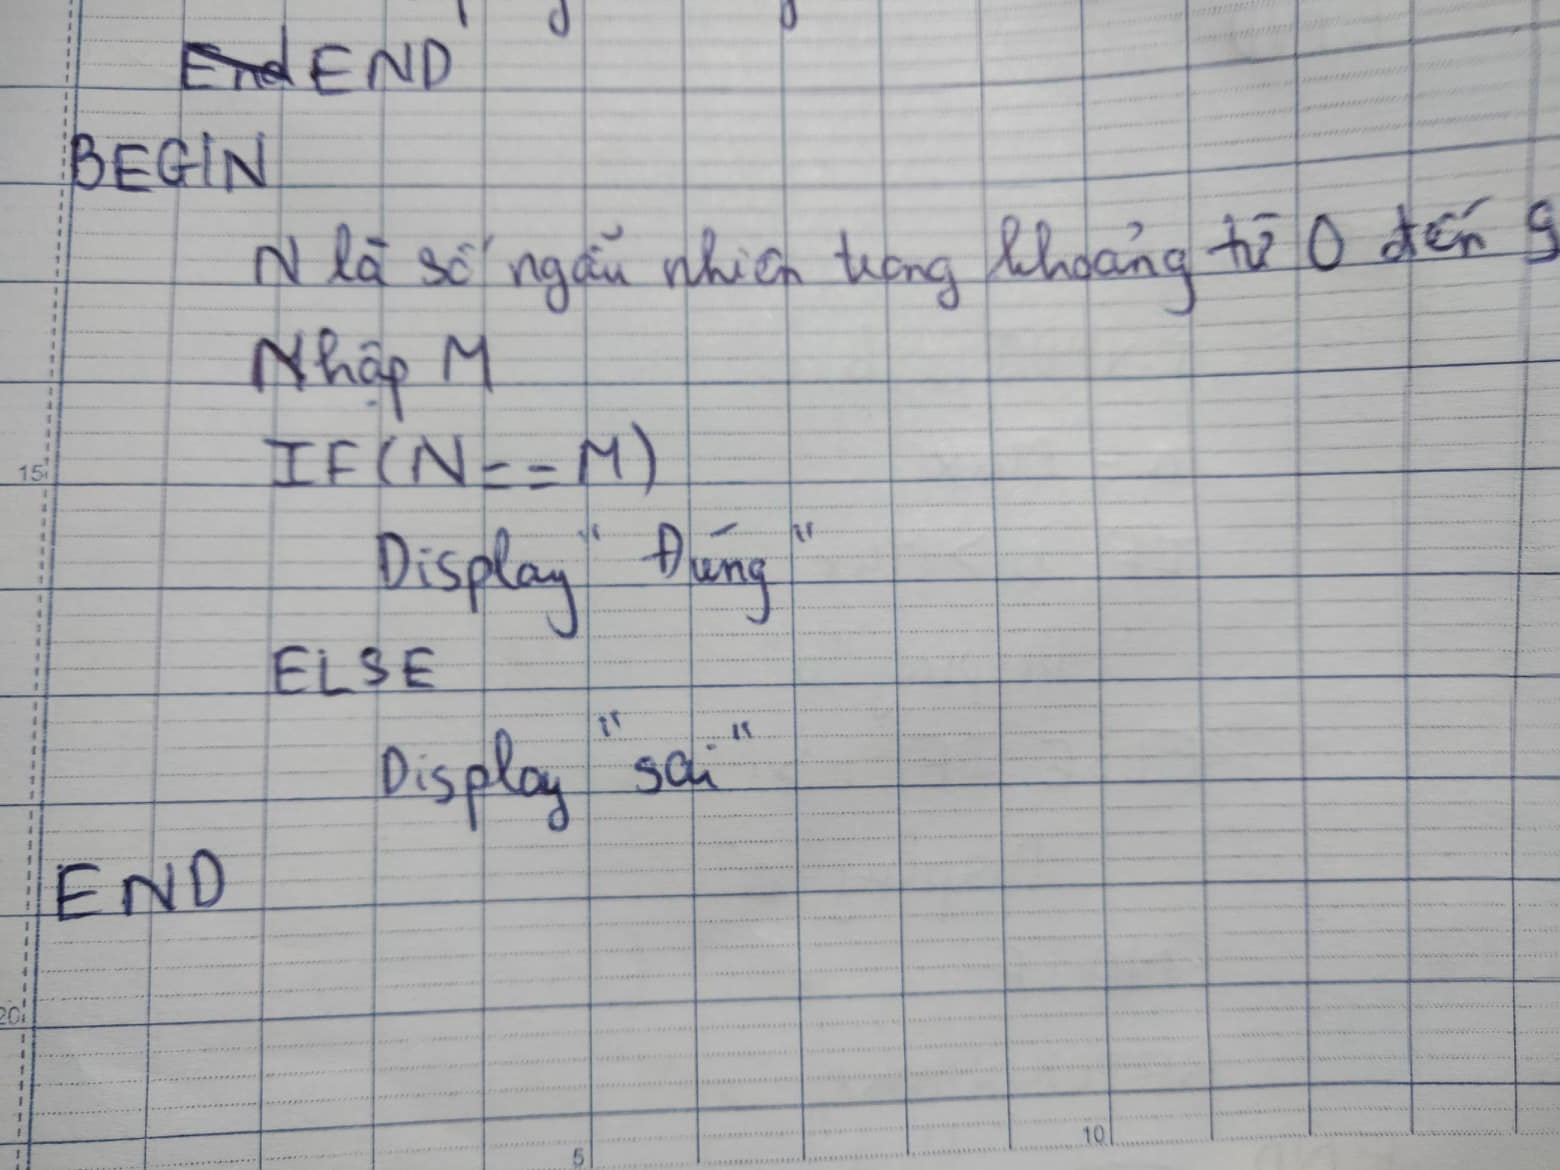 END
BEGIN
N là số ngẫu nhiên trong khoảng từ 0 đến 9
Nhập M
IF(N==M)
15
Display "Đúng"
ELSE
Display "sai"
END
20
10
5